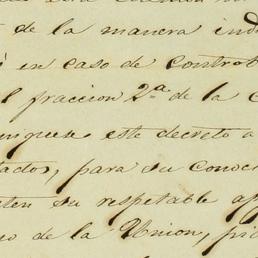 de la manera ind
en caso de contrav
l fraccion 2.ª de la C
unquen este decreto a
tados, para su conoc
iten su respetable ap
no de la Union, pid